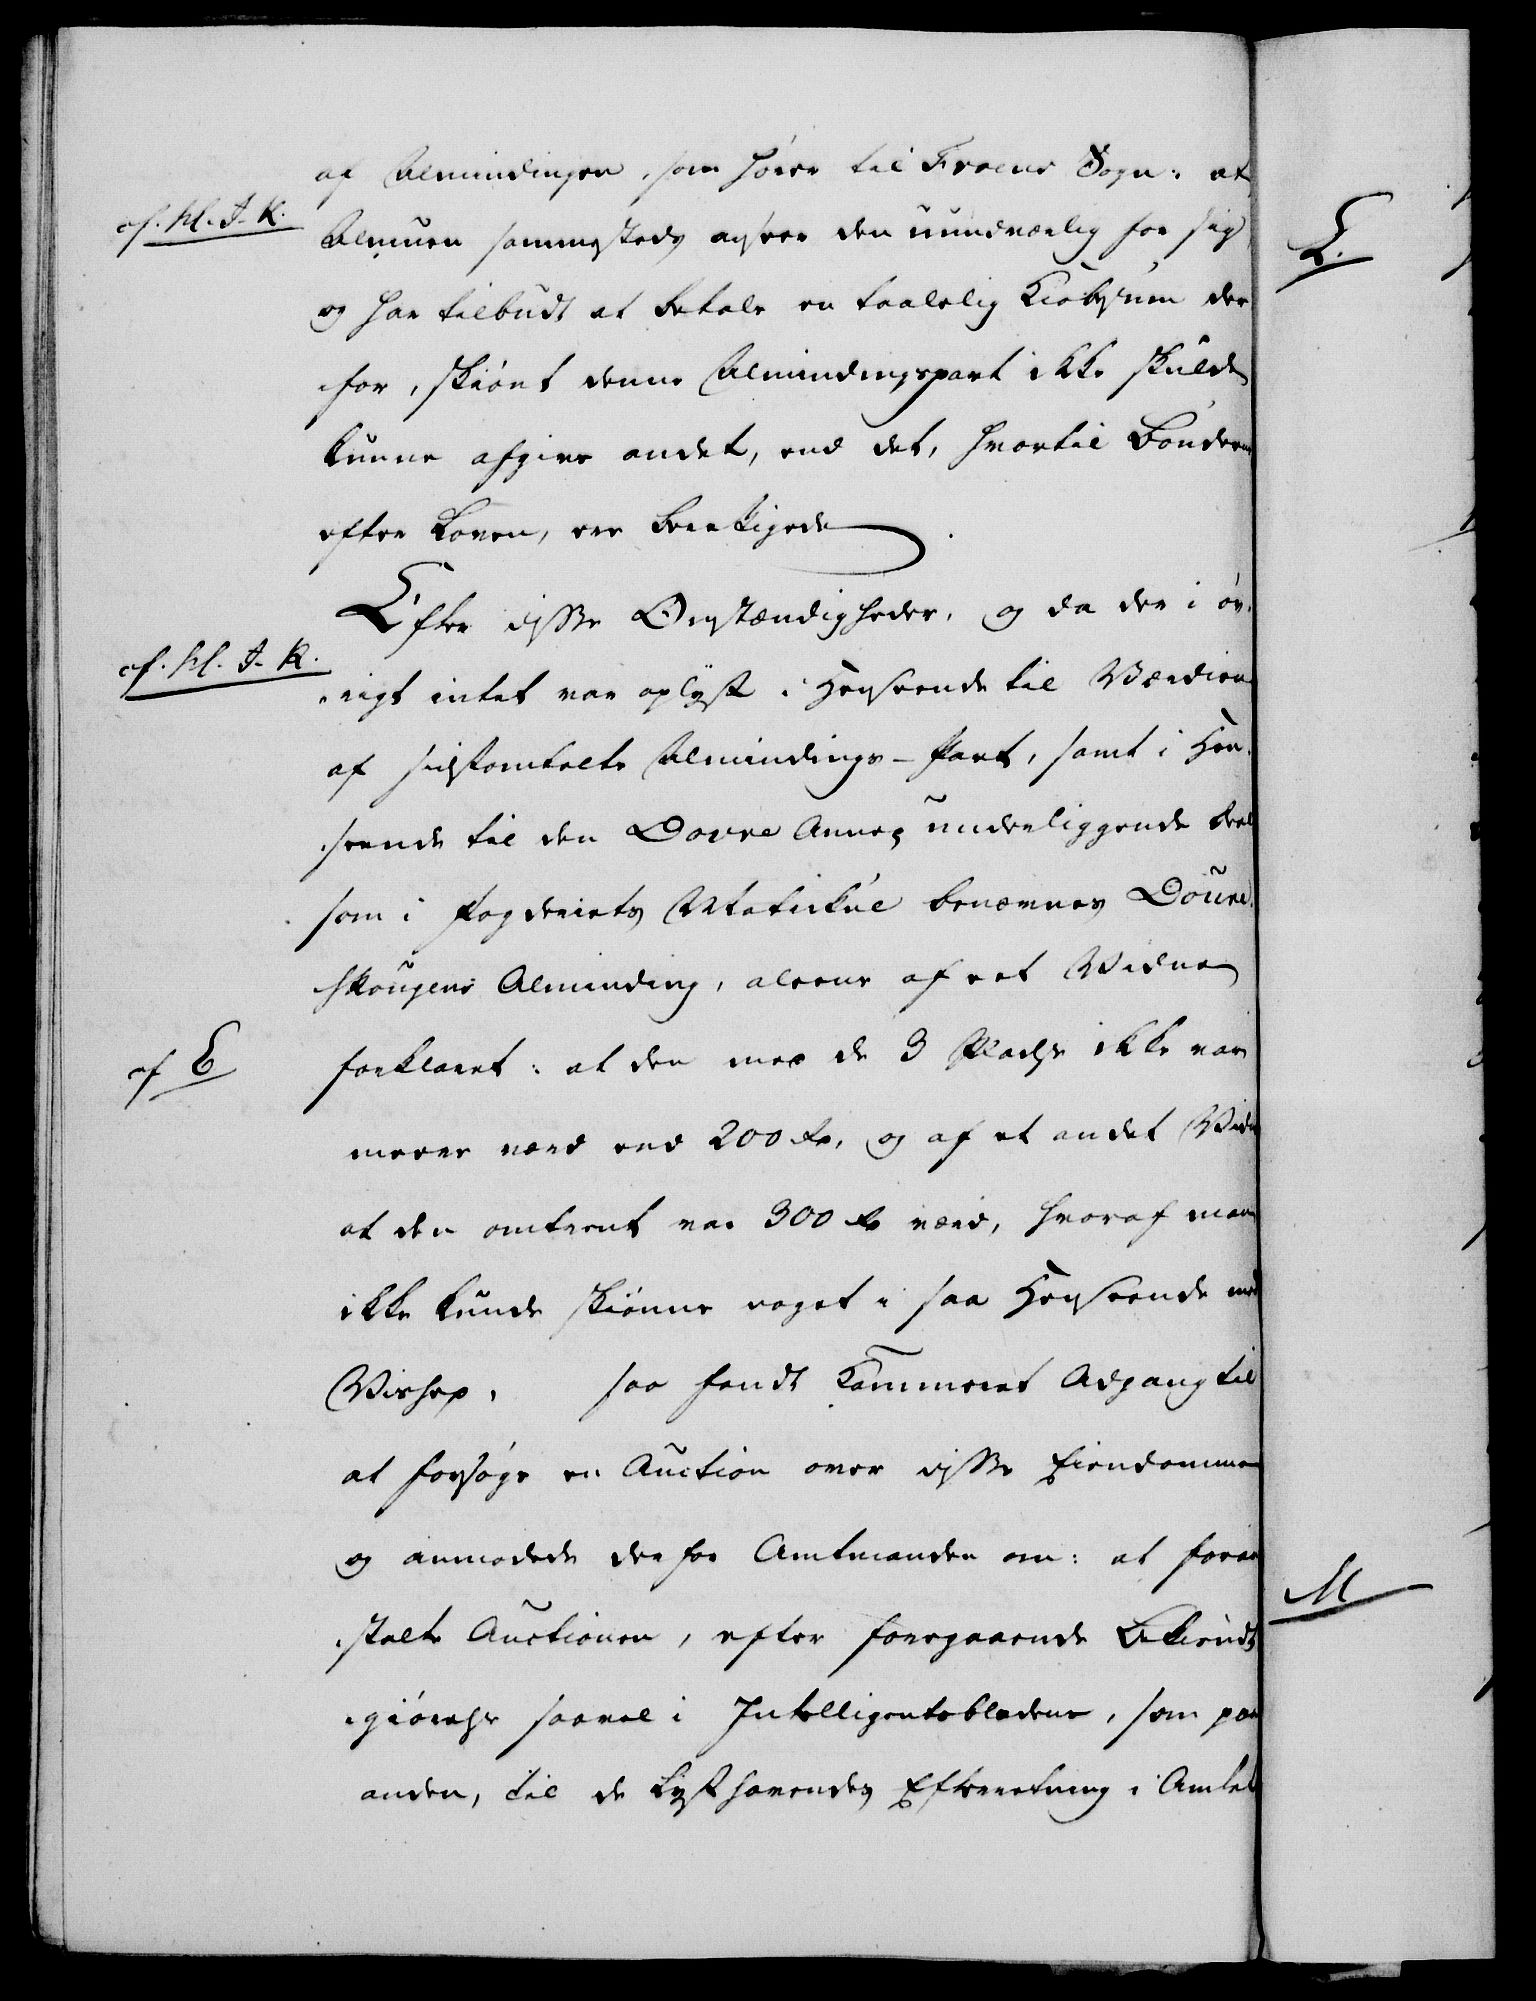 af Almindingen, som hører til Froens Sogn: at
af. H. I. K.
Almuen sammesteds ansees den uundværlig for sig
og har tilbudt at betale en taalelig Kiøbesum der
for, skiønt denne Almindingspart ikke skulde
kunne afgive andet, end det, hvortil Bønderne
efter Loven, ere berettigede
Efter disse Omstændigheder, og da der i øv-
af. H. I. K.
rigt intet var oplyst i Henseende til Værdien
af sidstomtalte Almindings-Part, samt i Hen-
seende til den Dovre Annex underliggende Deel
som i Fogderiets Matricul benævnes Doure-
skougens Alminding, aleene af eet Vidne
af E
forklaret: at den med de 3 Pladse ikke var
meere værd end 200 Rd, og af et andet Vidne
at den omtrent var 300 Rd værd, hvoraf man
ikke kunde skiønne noget i saa Henseende med
Vished, saa fandt Kammeret Adgang til
at forsøge en Auction over disse Eiendomme
og anmodede derfor Amtmanden om: at foran
stalte Auctionen, efter foregaaende Bekiendt
giørelse saavel i Intelligentsbladene, som paa
anden, til de Lysthavendes Efterretning i Amtet
E.
M